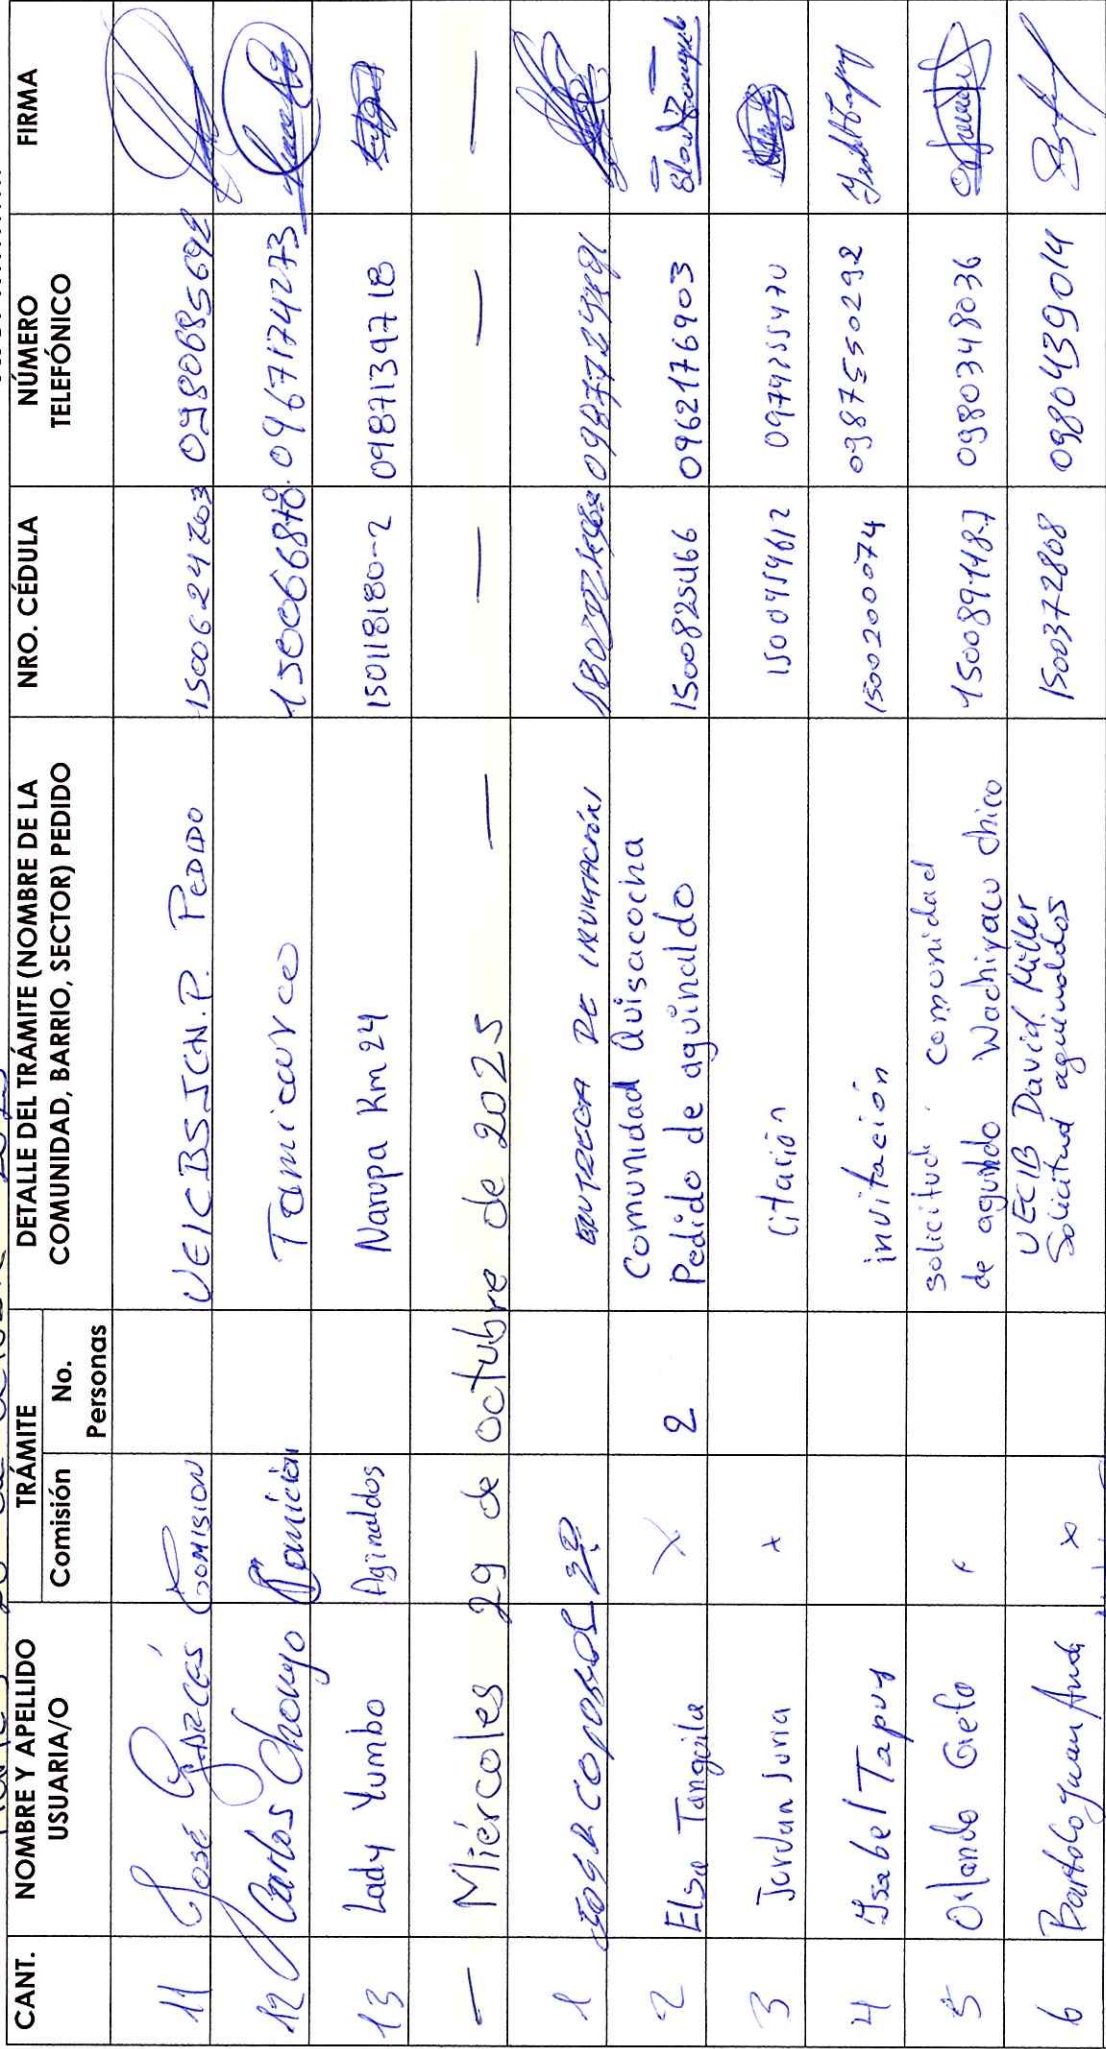 CANT. NOMBRE Y APELLIDO USUARIA/O TRÁMITE Comisión No. Personas DETALLE DEL TRÁMITE (NOMBRE DE LA COMUNIDAD, BARRIO, SECTOR) PEDIDO NRO. CÉDULA NÚMERO TELEFÓNICO FIRMA
11 José Garcés Comision UEICBSJCH.P. PEDIDO 1500624203 0980685692
12 Carlos Chongo 0967174273
13 Lady Yumbo Aginaldos Narupa Km 24 150118180-2 0987139718
— Miércoles 29 de octubre de 2025 — — — —
1 ENTREGA DE INVITACIÓN
2 Elsa Tanguila X 2 Comunidad Quisacocha
Pedido de aguinaldo 1500825466 0962176903
3 Jordan x Citación 0979255470
4 Isabel Tapuy invitación 1500200074 0987550292 Isabel Tapuy
5 Orlando solicitud comunidad
de aguindo Wachiyacu chico 150089148-7 0980348036
6 Bartolo Juan Andi x UECIB David Miller
Solicitud aguinaldos 1500372808 0980439014